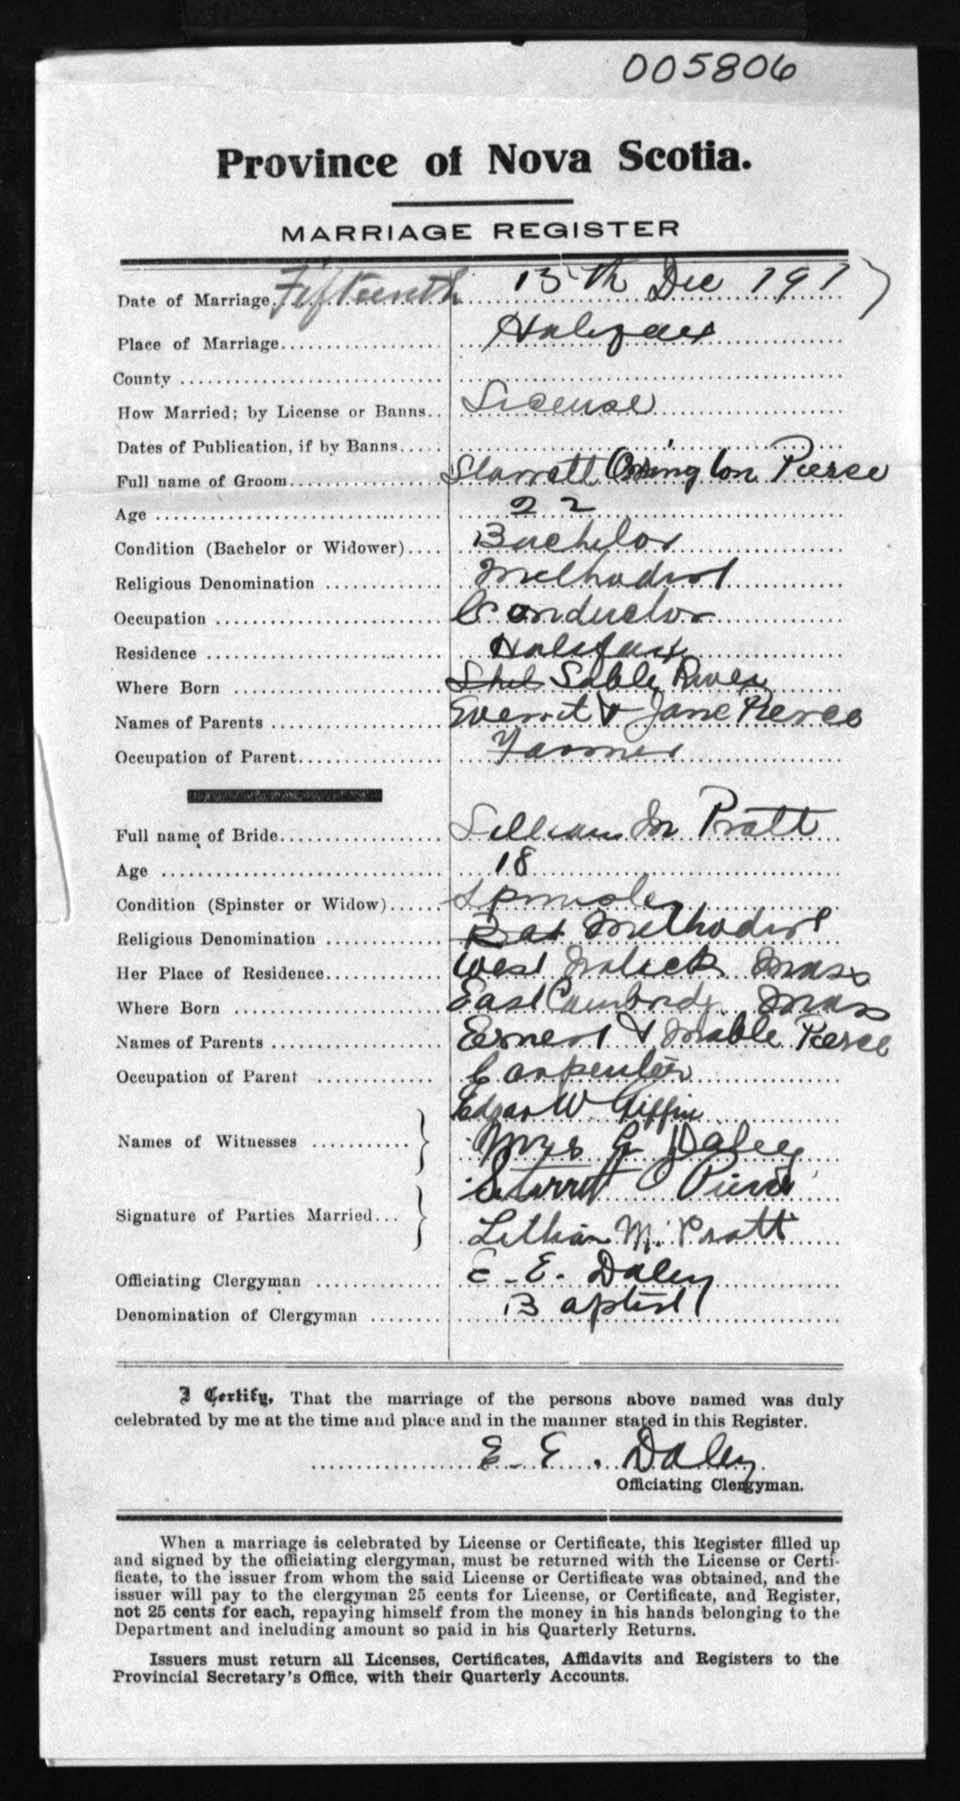 005806
Province of Nova Scotia.
MARRIAGE REGISTER
Date of Marriage. Fifteenth 15th Dec 1917
Place of Marriage Halifax
County
How Married; by License or Banns. License
Dates of Publication, if by Banns
Full name of Groom Starratt Pierce
Age 22
Condition (Bachelor or Widower) Bachelor
Religious Denomination Methodist
Occupation Conductor
Residence Halifax
Where Born Shel Sable River
Names of Parents Everret & Jane Pierce
Occupation of Parent Farmer
Full name of Bride Lillian M Pratt
Age 18
Condition (Spinster or Widow) Spinster
Religious Denomination Bap Methodist
Her Place of Residence West Natick Mass
Where Born East Cambridg Mass
Names of Parents Ernest & Mable Pierce
Occupation of Parent Carpenter
Edgar W Giffin
Names of Witnesses Mrs G Daley
Starrett O Pierce
Signature of Parties Married
Lillian M. Pratt
Officiating Clergyman E. E. Daley
Denomination of Clergyman Baptist
I Certify, That the marriage of the persons above named was duly
celebrated by me at the time and place and in the manner stated in this Register.
E. E. Daley
Officiating Clergyman.
When a marriage is celebrated by License or Certificate, this Register filled up
and signed by the officiating clergyman, must be returned with the License or Certi-
ficate, to the issuer from whom the said License or Certificate was obtained, and the
issuer will pay to the clergyman 25 cents for License, or Certificate, and Register,
not 25 cents for each, repaying himself from the money in his hands belonging to the
Department and including amount so paid in his Quarterly Returns.
Issuers must return all Licenses, Certificates, Affidavits and Registers to the
Provincial Secretary's Office, with their Quarterly Accounts.